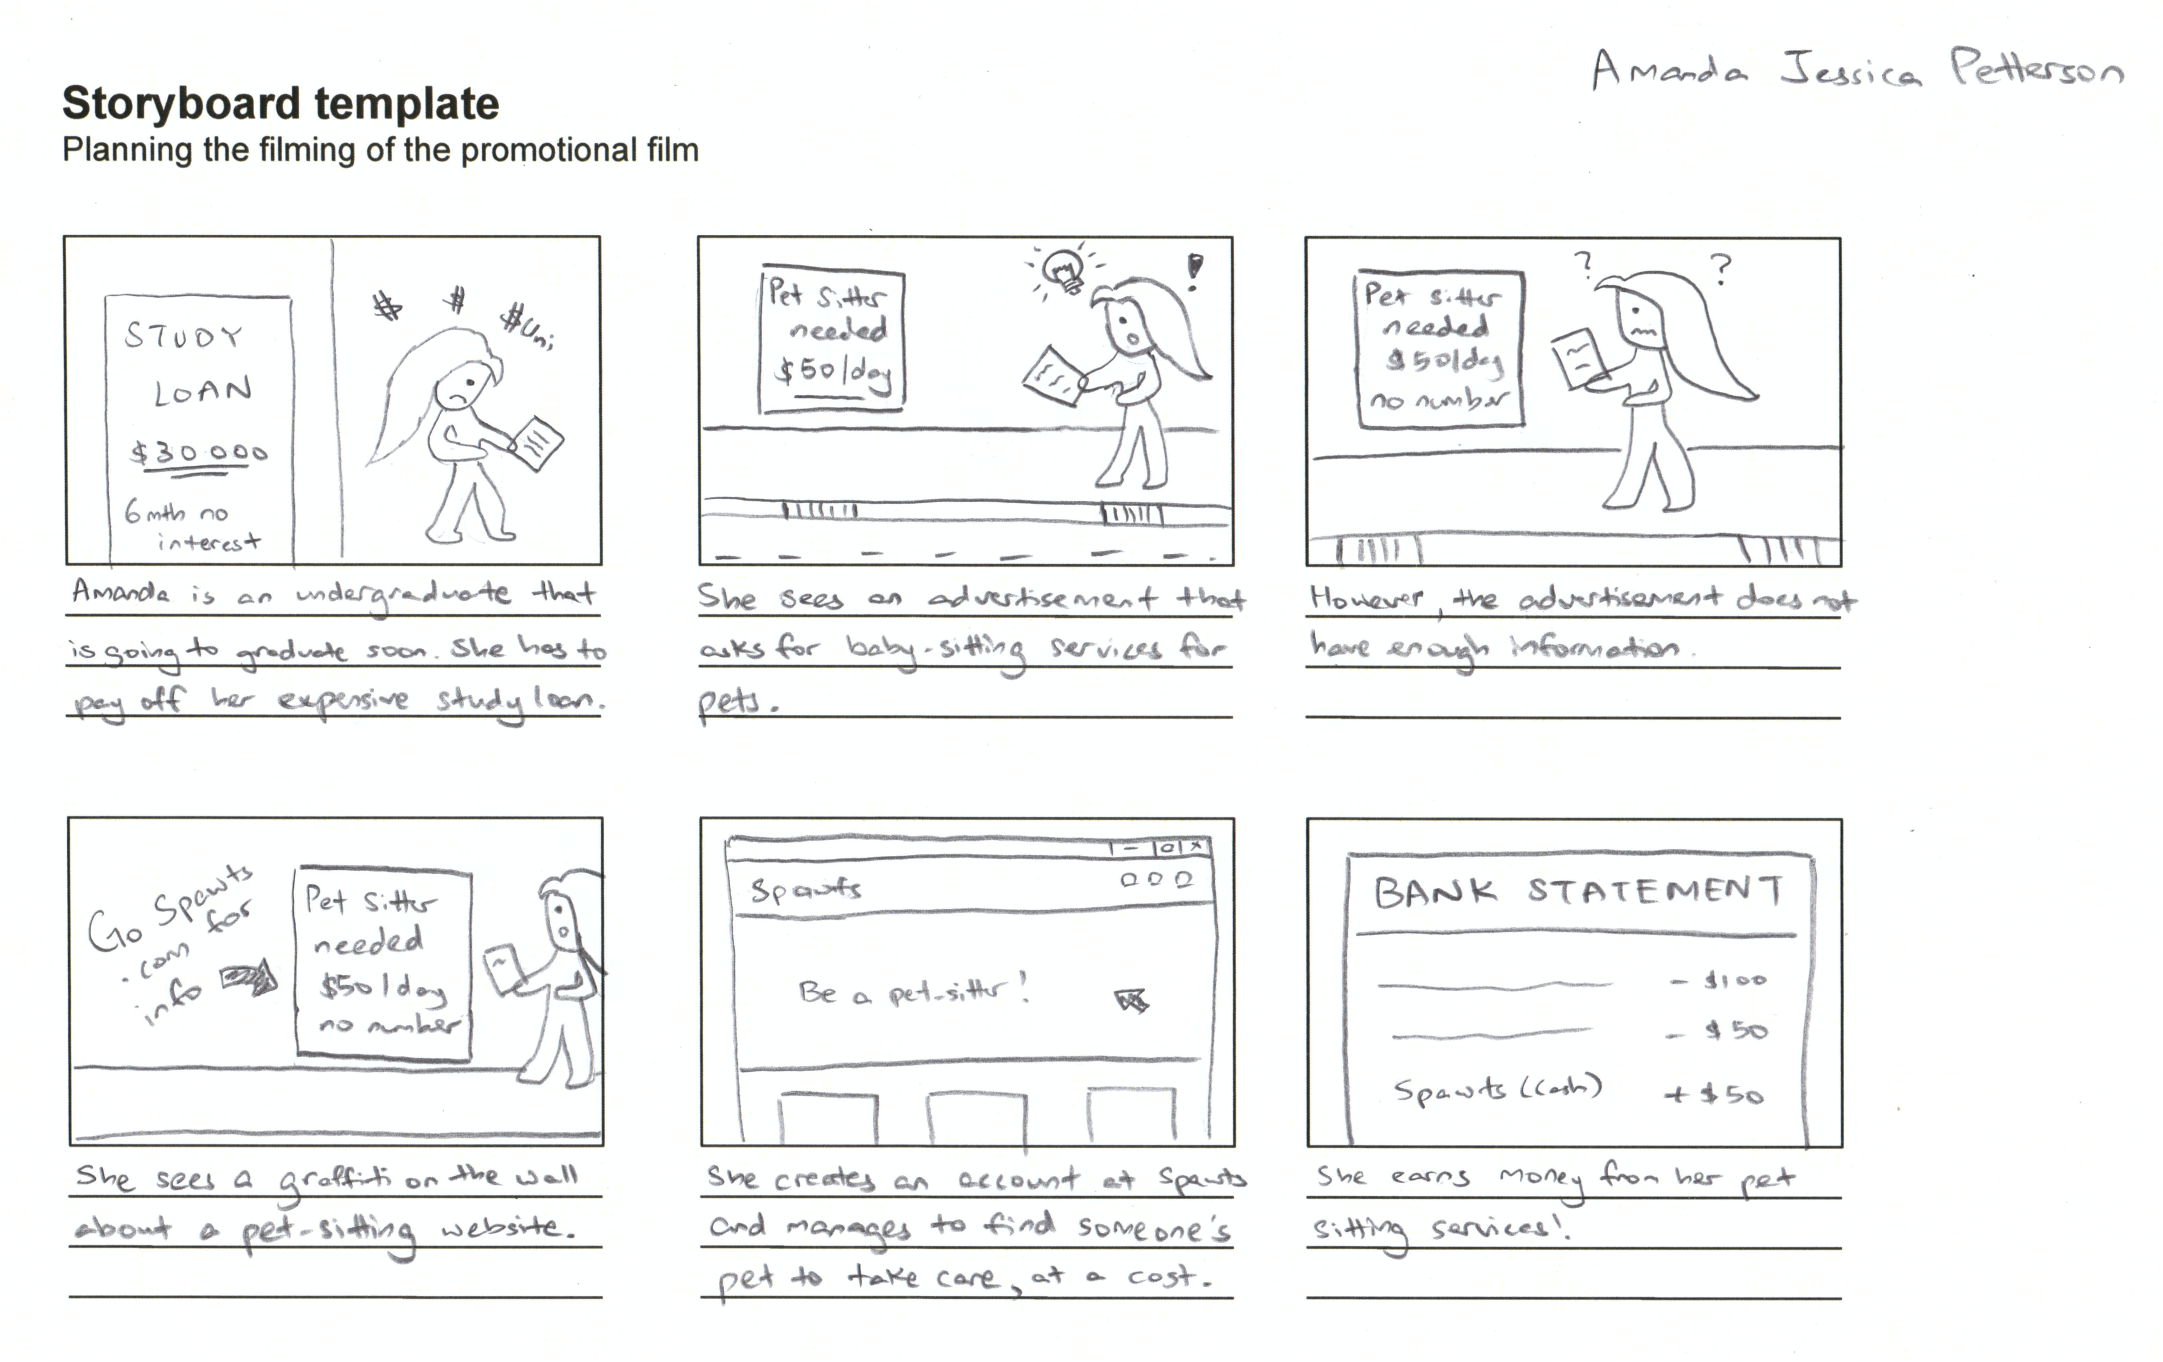 Amanda Jessica Petterson
Storyboard template
Planning the filming of the promotional film
STUDY
LOAN
$30 000
6 mth no
interest
$ $ $ Uni
Amanda is an undergraduate that
is going to graduate soon. She has to
pay off her expensive study loan.
Pet Sitter
needed
$50/day
!
She sees an advertisement that
asks for baby-sitting services for
pets.
Pet sitter
needed
$50/day
no number
? ?
However, the advertisement does not
have enough information.
Go Spawts
.com for
info
Pet Sitter
needed
$50/day
no number
She sees a graffiti on the wall
about a pet-sitting website.
Spawts
Be a pet-sitter!
She creates an account at Spawts
and manages to find someone's
pet to take care, at a cost.
BANK STATEMENT
- $100
- $50
Spawts (Cash) + $50
She earns money from her pet
sitting services!